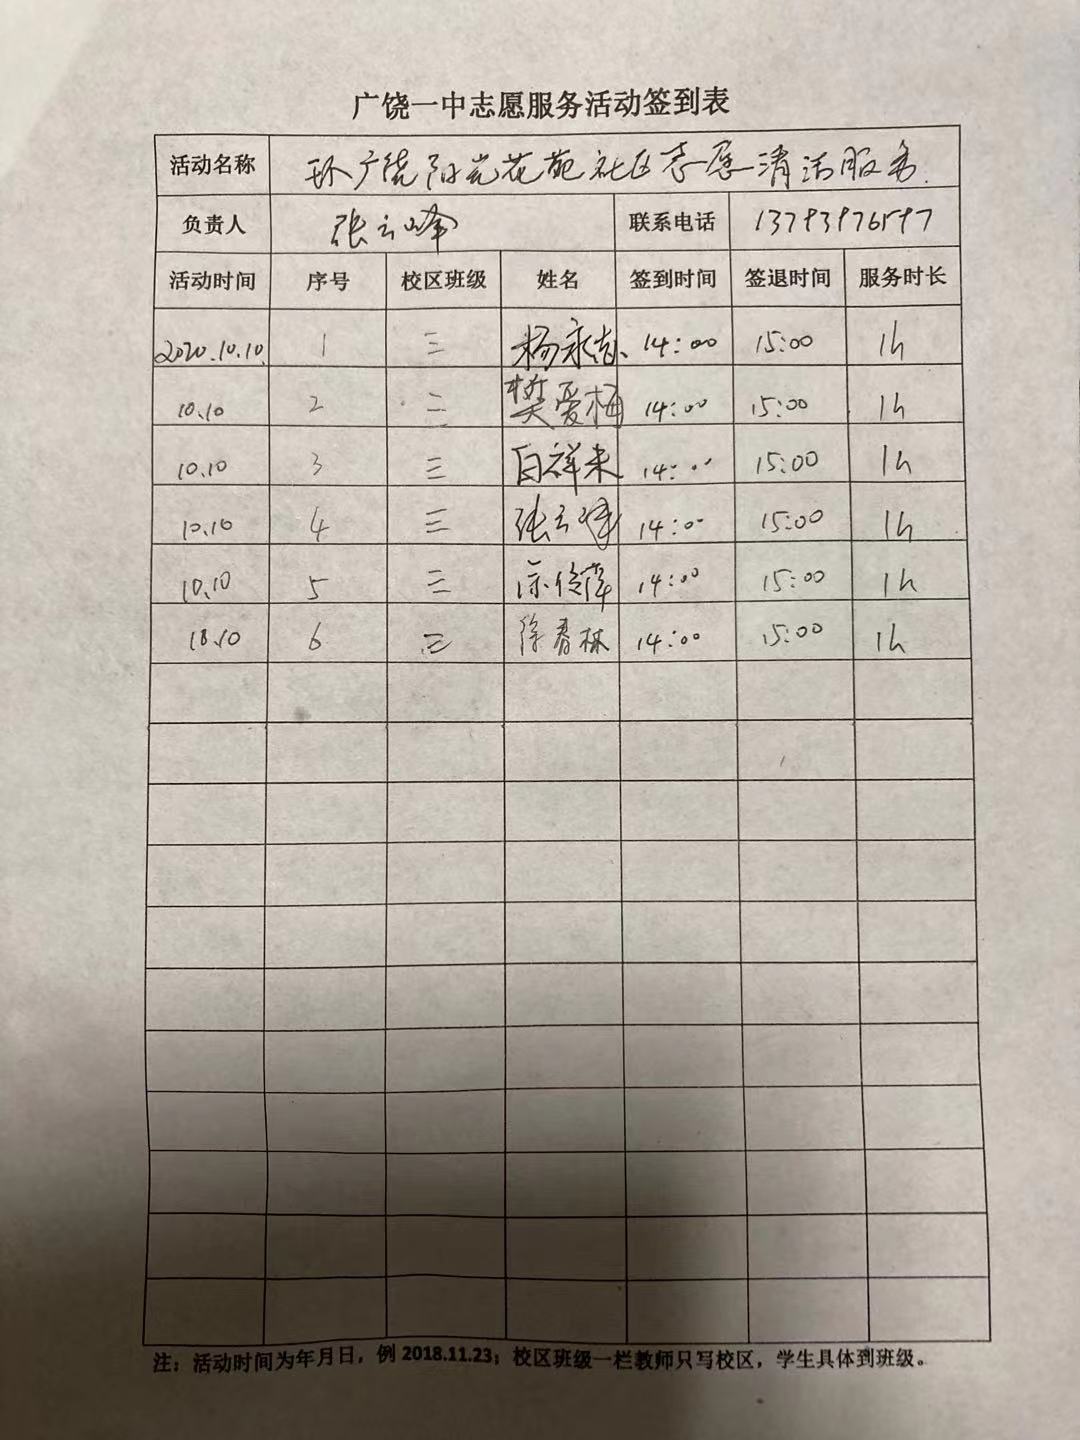 广饶一中志愿服务活动签到表
活动名称 环广饶阳光花苑社区志愿清洁服务.
负责人 张云峰 联系电话 13793976597
活动时间 序号 校区班级 姓名 签到时间 签退时间 服务时长
2020.10.10. 1 三 杨永志. 14:00 15:00 1h
10.10 2 三 樊爱梅 14:00 15:00 1h
10.10 3 三 白祥来 14:00 15:00 1h
10.10 4 三 张云峰 14:00 15:00 1h
10.10 5 三 14:00 15:00 1h
10.10 6 三 徐春林 14:00 15:00 1h
注：活动时间为年月日，例 2018.11.23；校区班级一栏教师只写校区，学生具体到班级。